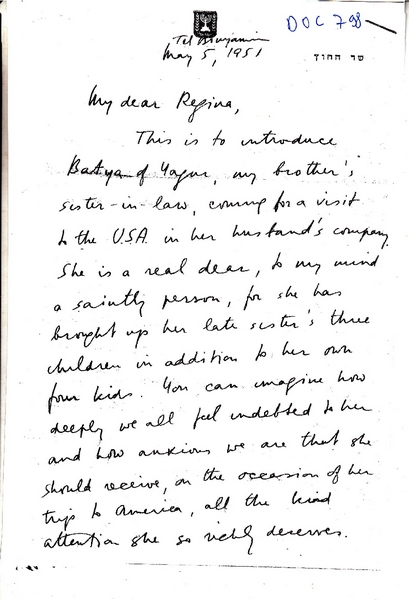 DOC 798
Tel Binyamin
May 5, 1951
שר החוץ
My dear Regina,
This is to introduce
Batya of Yagur, my brother's
sister-in-law, coming for a visit
to the U.S.A. in her husband's company.
She is a real dear, to my mind
a saintly person, for she has
brought up her late sister's three
children in addition to her own
four kids. You can imagine how
deeply we all feel indebted to her
and how anxious we are that she
should receive, on the occasion of her
trip to America, all the kind
attention she so richly deserves.